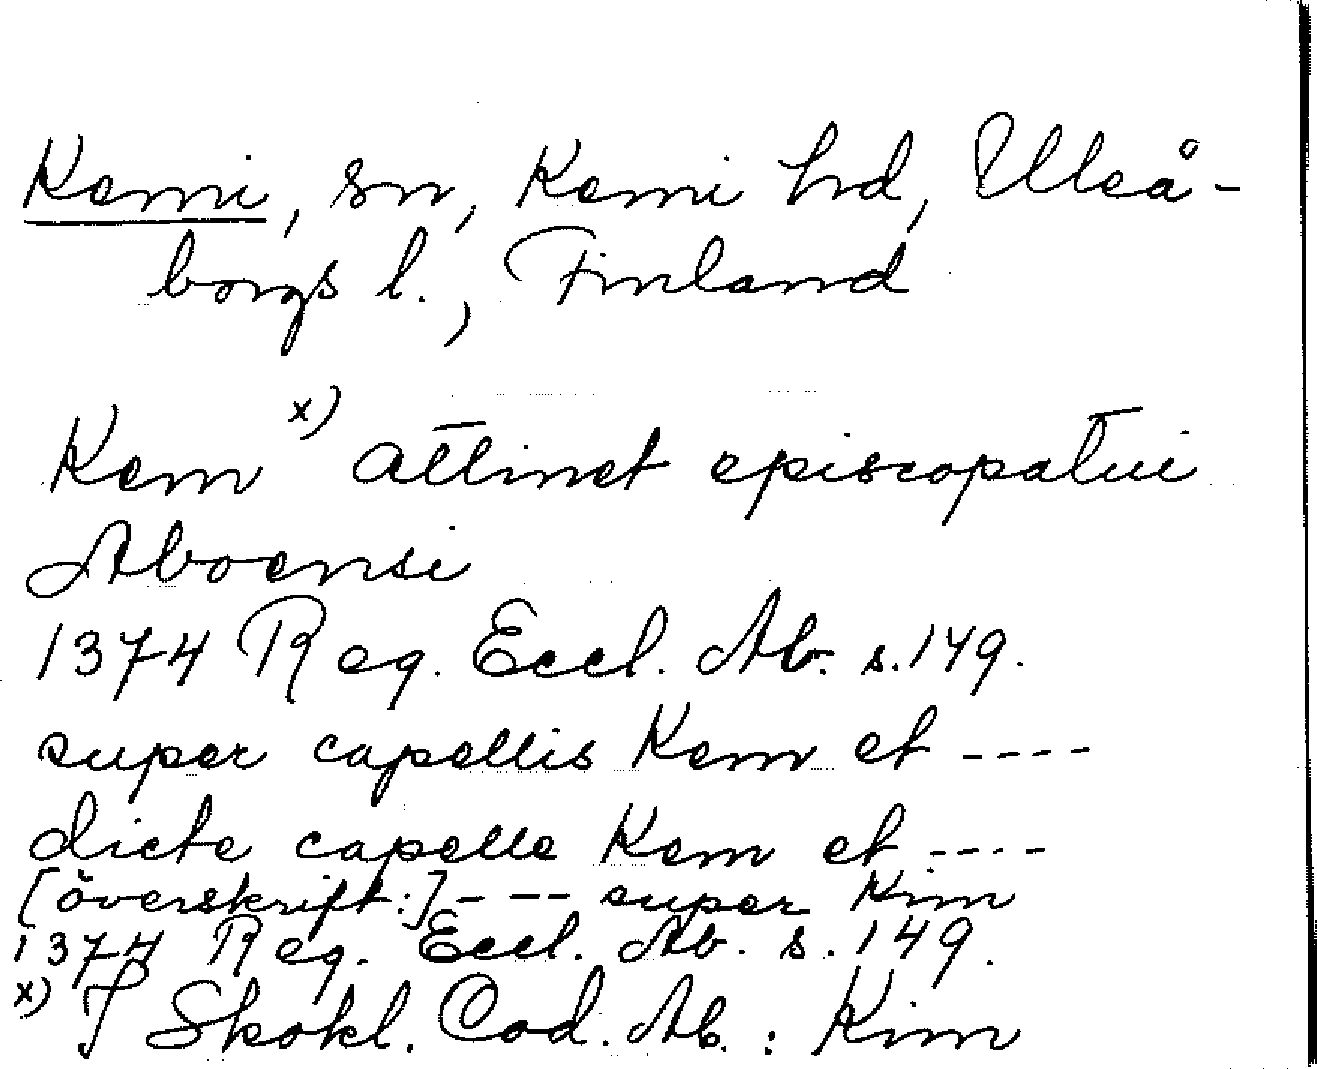 Kemi, sn, Kemi hd, Uleå-
borgs l., Finland
Kem x) attinet episcopatui
Aboensi
1374 Reg. Eccl. Ab. s. 149.
super capellis Kem et ----
dicte capelle Kem et ----
[överskrift:] - -- super Kim
1374 Reg. Eccl. Ab. s. 149.
x) I Skokl. Cod. Ab. : Kim